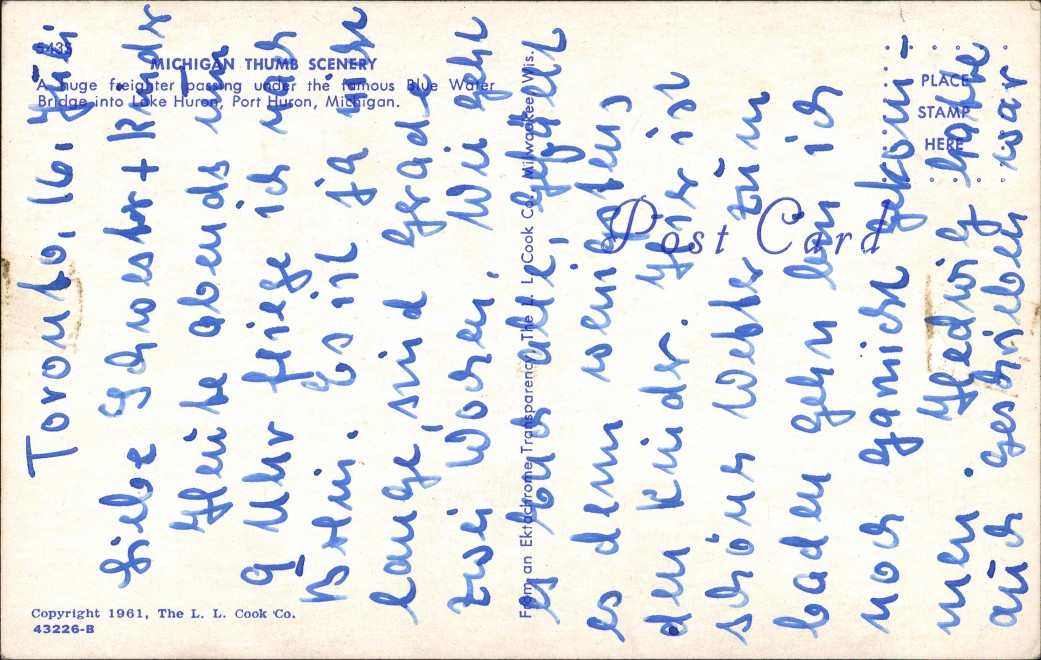 MICHIGAN THUMB SCENERY
A huge freighter passing under the famous Blue Water
Bridge into Lake Huron, Port Huron, Michigan.
PLACE
STAMP
HERE
Post Card
From an Ektachrome Transparency, The L. L. Cook Co., Milwaukee, Wis.
Copyright 1961, The L. L. Cook Co.
43226-B
Toronto, 16. Juli
Liebe Schwester + Kinder
Heute abends um
9 Uhr fliege ich nach
Berlin. Es ist ja nicht
lange, sind gerade
zwei Wochen. Wie geht
es Euch alle, gefällt
es denn wenigstens
den Kinder. Hier ist
schönes Wetter zum
baden gehn bin ich
noch garnicht gekom-
men. Hedwig hatte
auch geschrieben war